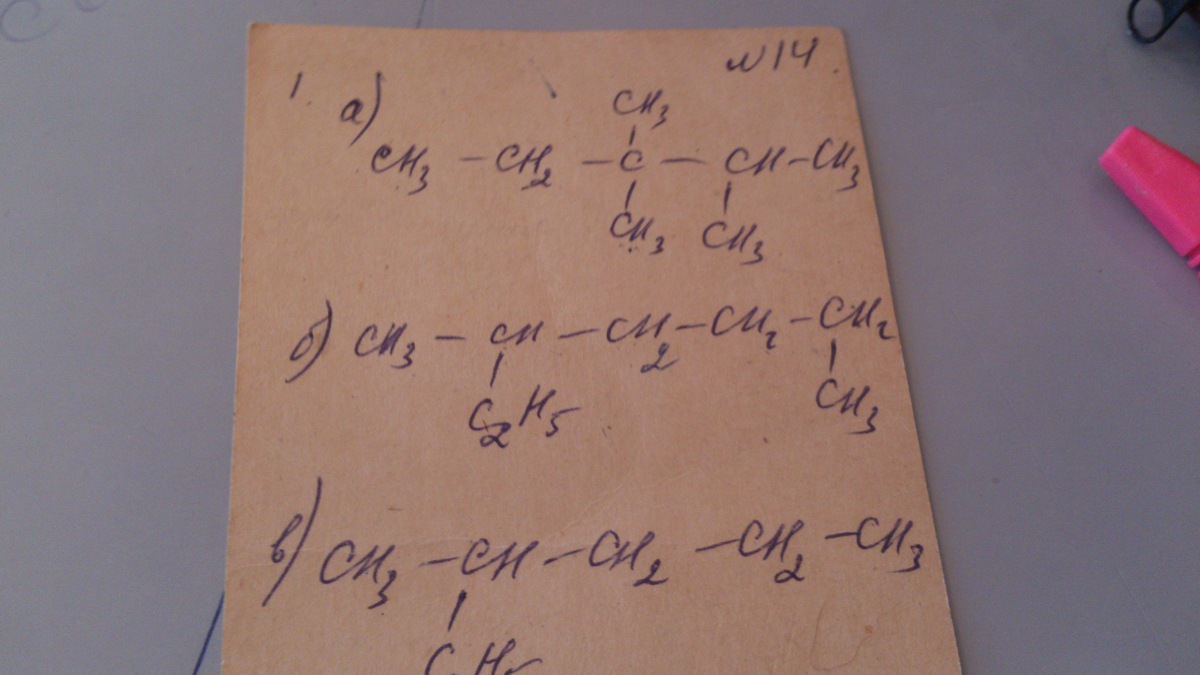 №14.
1 а)
CH3
CH3 - CH2 - C - CH - CH3
CH3 CH3
б) CH3 - CH - CH2 - CH2 - CH2
C2H5 CH3
в) CH3 - CH - CH2 - CH2 - CH3